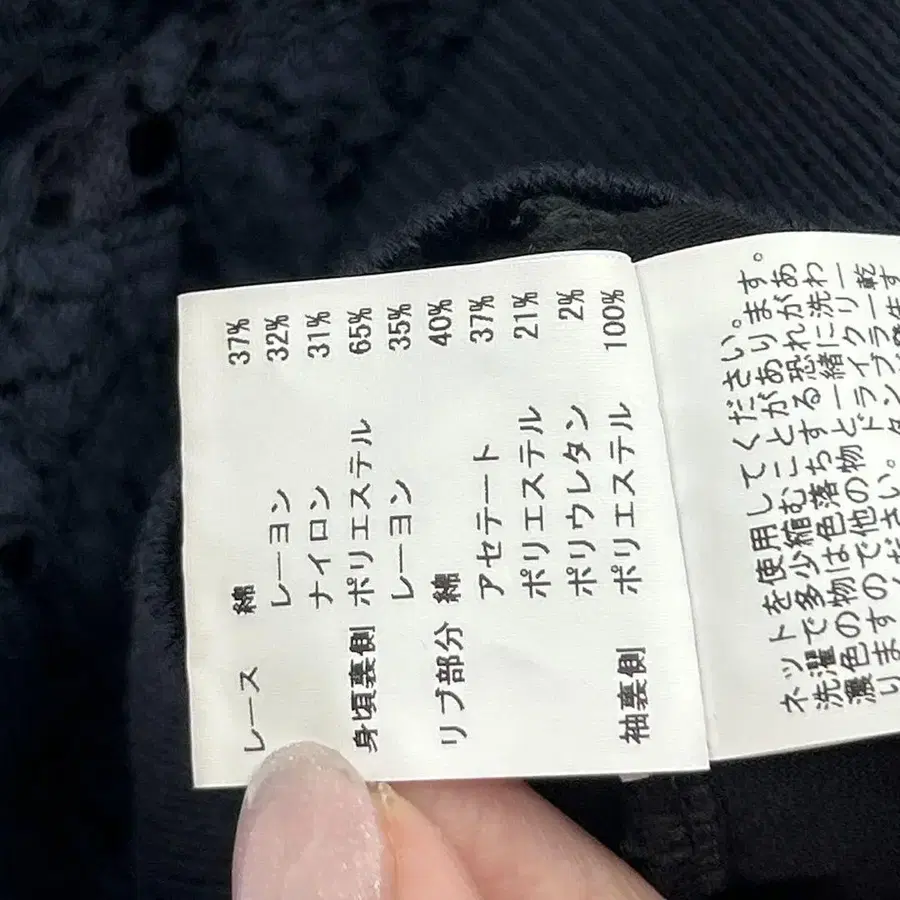 レース 綿 37%
レーヨン 32%
ナイロン 31%
身頃裏側 ポリエステル 65%
レーヨン 35%
リブ部分 綿 40%
アセテート 37%
ポリエステル 21%
ポリウレタン 2%
袖裏側 ポリエステル 100%
ネットを使用してください。
洗濯で多少縮むことがあります。
濃色の物は色落ちする恐れがあ
りますので他の物と一緒に洗わ